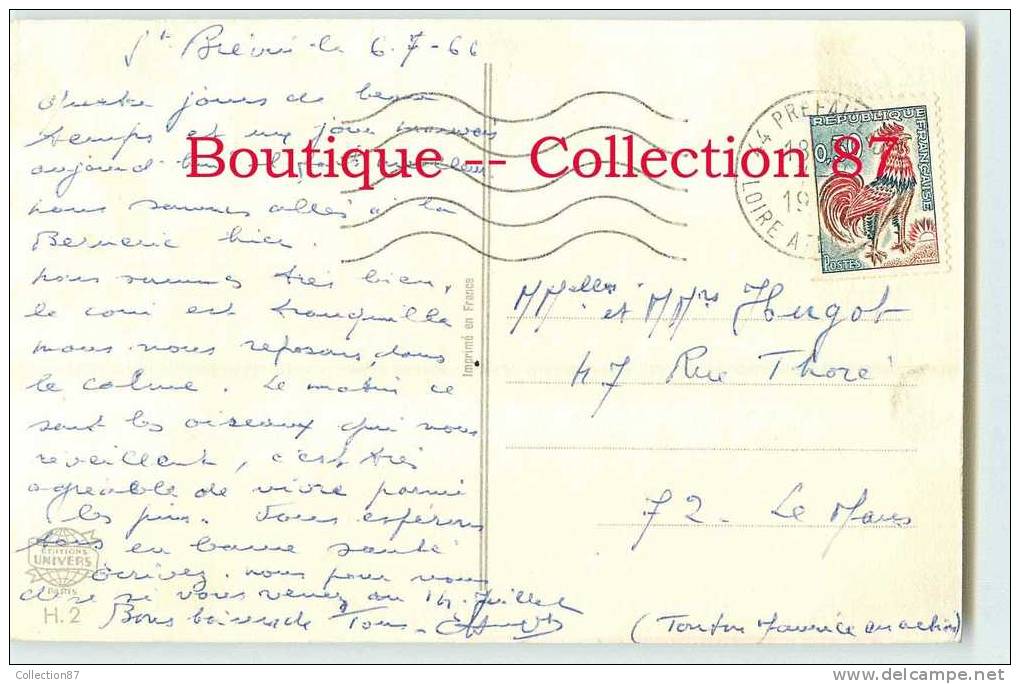 St Brévin le 6-7-66
Quatre jours de beau
temps et un jour mauvais
aujourd'hui
nous sommes allés à la
Bernerie hier.
nous sommes très bien,
le coin est tranquille
nous nous reposons dans
le calme. Le matin ce
sont les oiseaux qui nous
réveillent, c'est très
agréable de vivre parmi
les pins. Vous espérons
tous en bonne santé
Écrivez-nous pour nous
dire si vous venez au 14 Juillet
Bons baisers de Tous
Boutique -- Collection 87
44 PREFAIL
LOIRE ATL
18
19
REPUBLIQUE
FRANÇAISE
POSTES
Imprimé en France
MMelles et MMrs Hugot
47 Rue Thoré
72 - Le Mans
(Tonton Maurice en action)
EDITIONS
UNIVERS
PARIS
H.2
Collection87
delcampe.net